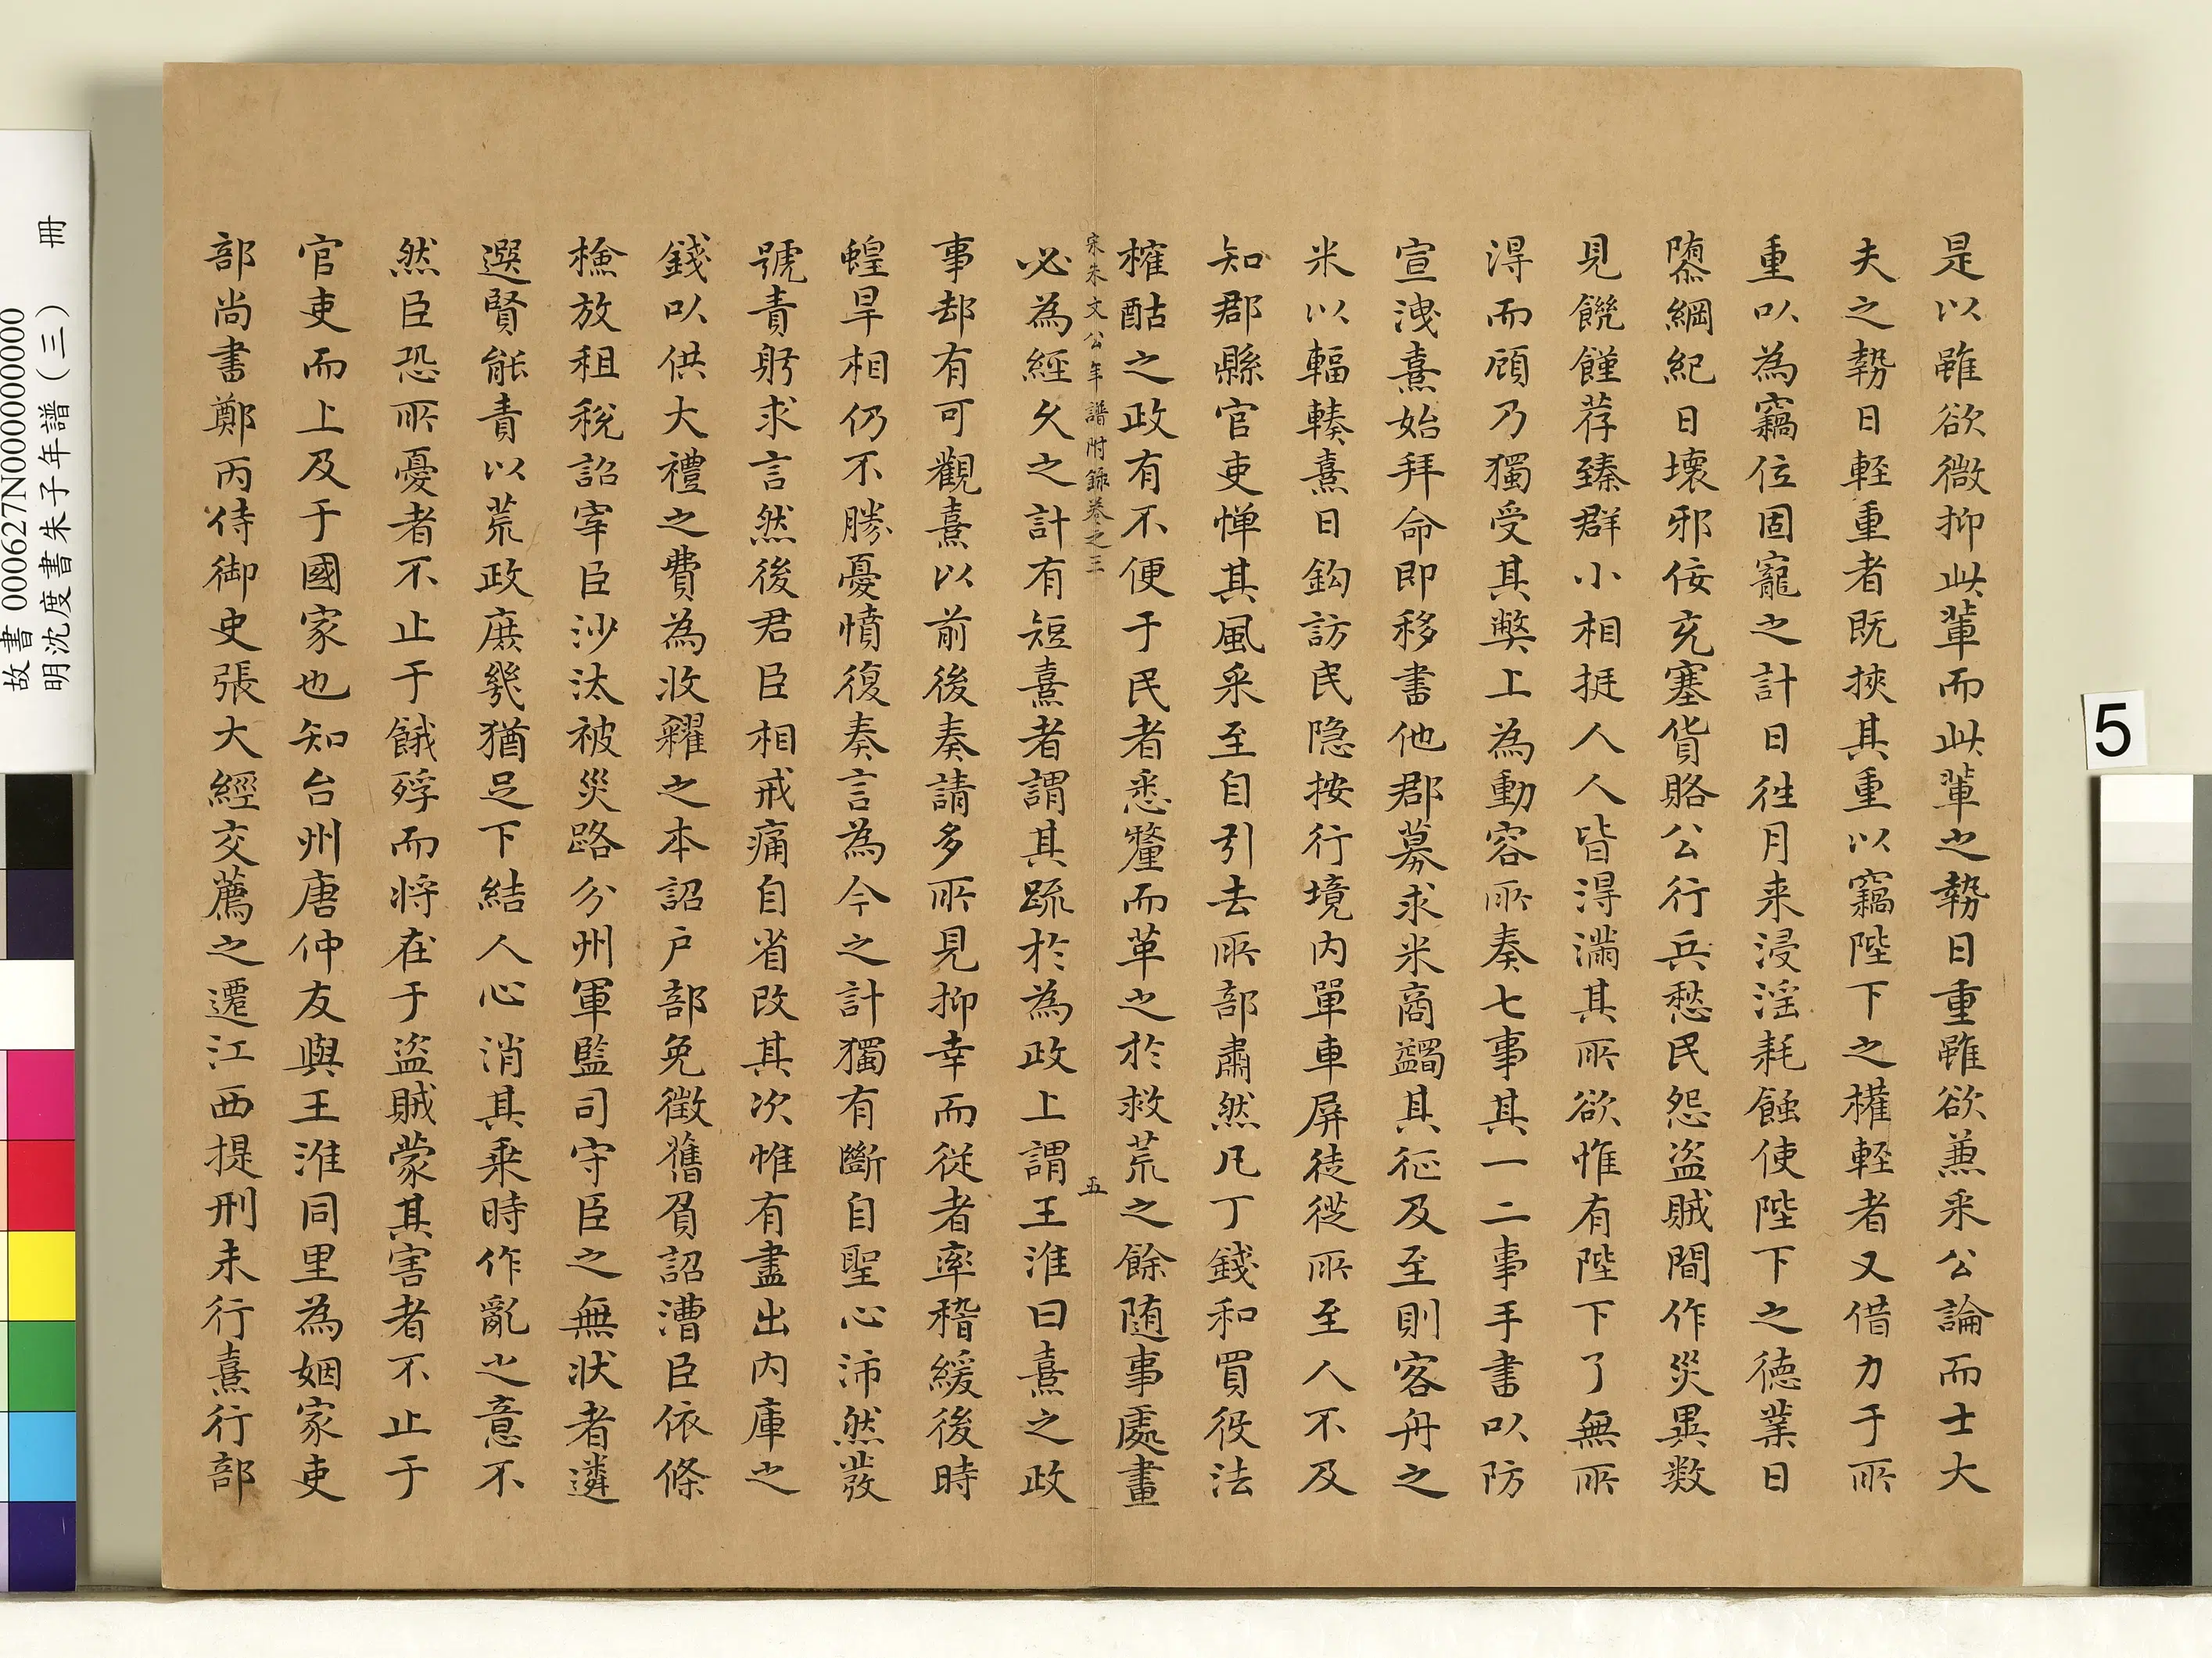 是以雖欲微抑此輩而此輩之勢日重雖欲兼采公論而士大
夫之勢日輕重者既挾其重以竊陛下之權輕者又借力于所
重以為竊位固寵之計日往月来浸淫耗蝕使陛下之德業日
隳綱紀日壞邪佞充塞貨賂公行兵愁民怨盜賊間作災異数
見饑饉荐臻群小相挺人人皆得滿其所欲惟有陛下了無所
得而顧乃獨受其弊上為動容所奏七事其一二事手書以防
宣洩熹始拜命即移書他郡募求米商蠲其征及至則客舟之
米以輻輳熹日鈎訪民隐按行境内單車屏徒從所至人不及
知郡縣官吏憚其風采至自引去所部肅然凡丁錢和買役法
榷酤之政有不便于民者悉釐而革之於救荒之餘随事處畫
宋朱文公年譜附錄卷之三
五
必為經久之計有短熹者謂其疏於為政上謂王淮曰熹之政
事却有可觀熹以前後奏請多所見抑幸而從者率稽緩後時
蝗旱相仍不勝憂憤復奏言為今之計獨有斷自聖心沛然發
號責躬求言然後君臣相戒痛自省改其次惟有盡出内庫之
錢以供大禮之費為收糴之本詔户部免徵舊負詔漕臣依條
檢放租稅詔宰臣沙汰被災路分州軍監司守臣之無狀者遴
選賢能責以荒政庶幾猶足下結人心消其乘時作亂之意不
然臣恐所憂者不止于餓殍而将在于盜賊蒙其害者不止于
官吏而上及于國家也知台州唐仲友與王淮同里為姻家吏
部尚書鄭丙侍御史張大經交薦之遷江西提刑未行熹行部
故書 000627N000000000
明沈度書朱子年譜(三) 冊
5